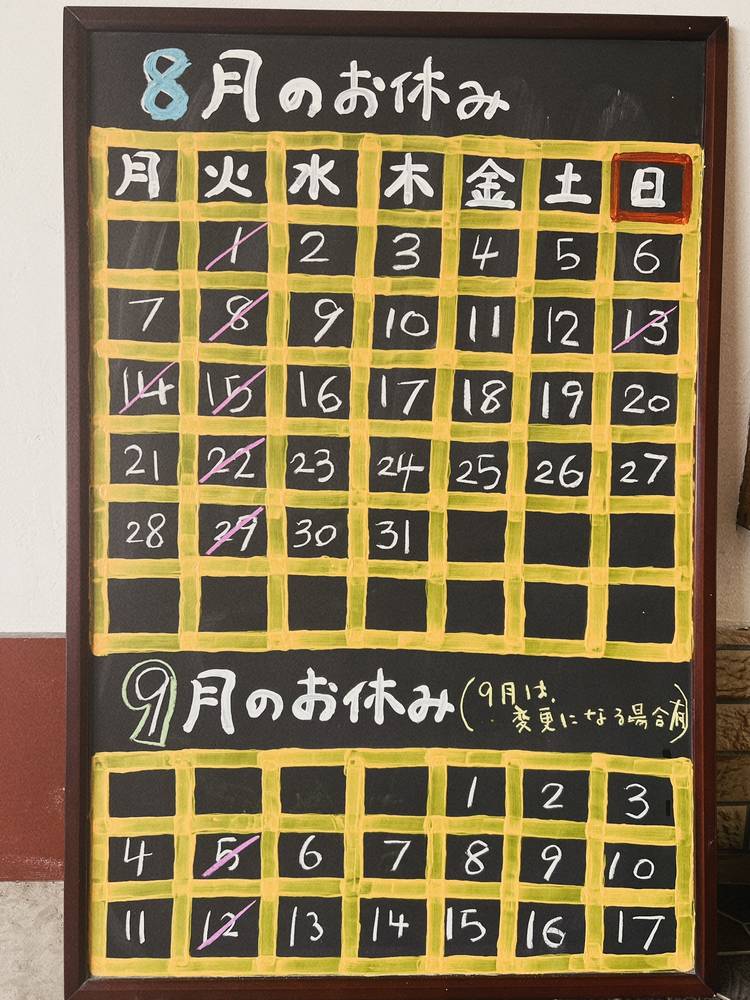 8月のお休み
月 火 水 木 金 土 日
1 2 3 4 5 6
7 8 9 10 11 12 13
14 15 16 17 18 19 20
21 22 23 24 25 26 27
28 29 30 31
9月のお休み(9月は、
変更になる場合有)
1 2 3
4 5 6 7 8 9 10
11 12 13 14 15 16 17